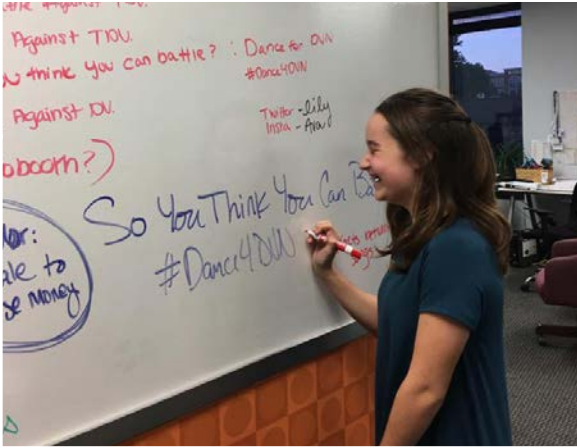 Against TIOV.
think you can battle? : Dance for OVN
#Dance4OVN
Against IOV.
Twitter - Lily
Insta - Ava
obooth?)
So You Think You Can
#Dance4OVN
to
se money